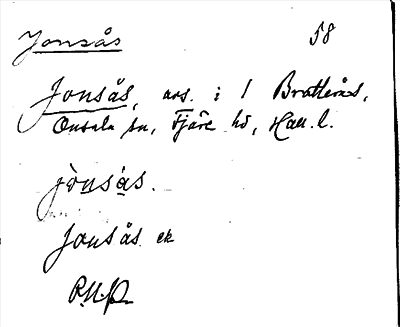 Jonsås 58
Jonsås, avs. i 1 Brattås,
Onsala sn, Fjäre hd, Hall. l.
jònsás.
Jonsås ek